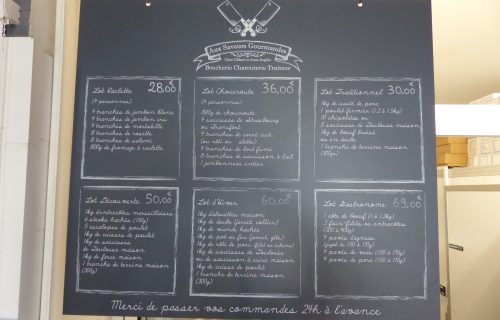 Aux Saveurs Gourmandes
Chez Gilbert et Anne-Sophie
Boucherie Charcuterie Traiteur
Lot Raclette 28,00€
(4 personnes)
4 tranches de jambon blanc
4 tranches de jambon cru
4 tranches de mortadelle
8 tranches de rosette
8 tranches de salami
800g de fromage à raclette
Lot Choucroute 36,00€
(4 personnes)
800g de choucroute
4 saucisses de Strasbourg
ou Francfort
4 tranches de carré cuit
4 tranches de lard fumé
8 tranches de saucisson à l'ail
1 jambonneau entier
Lot Traditionnel 30,00€
1kg de sauté de porc
1 poulet fermier (1.2 à 1.5kg)
10 chipolatas ou
8 saucisses de Toulouse maison
1kg de bœuf braisé
ou en daube
1 tranche de terrine maison
(300g)
Lot Découverte 50,00€
1kg d'entrecôtes marseillaises
6 steaks hachés (150g)
5 escalopes de poulet
1kg de cuisses de poulet
1kg de saucisses
de Toulouse maison
1kg de farce maison
1 tranche de terrine maison
(300g)
Lot d'Hiver 60,00€
1kg de viande hachée
1kg de pot au feu (jarret, gîte)
1kg de rôti de porc
1kg de saucisses de Toulouse
ou de saucisson à cuire maison
1kg de cuisses de poulet
1 tranche de terrine maison
(300g)
Lot Gastronome 69,00€
1 côte de bœuf (1 à 1.2kg)
2 faux-filets ou entrecôtes
4 pavés d'agneau
4 pavés de veau (150 à 170g)
4 pavés de porc (150 à 170g)
Merci de passer vos commandes 24h à l'avance